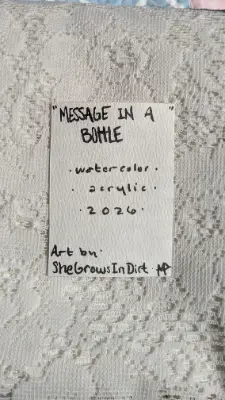 "MESSAGE IN A "
BOTTLE
· watercolor ·
· acrylic ·
· 2026 ·
Art by:
SheGrowsInDirt · AP